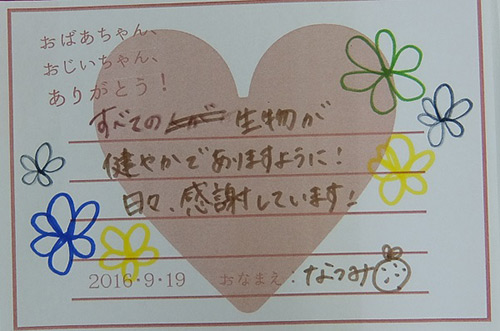 おばあちゃん、
おじいちゃん、
ありがとう!
すべての 生物が
健やかでありますように!
日々、感謝しています!
2016・9・19 おなまえ:なつみ